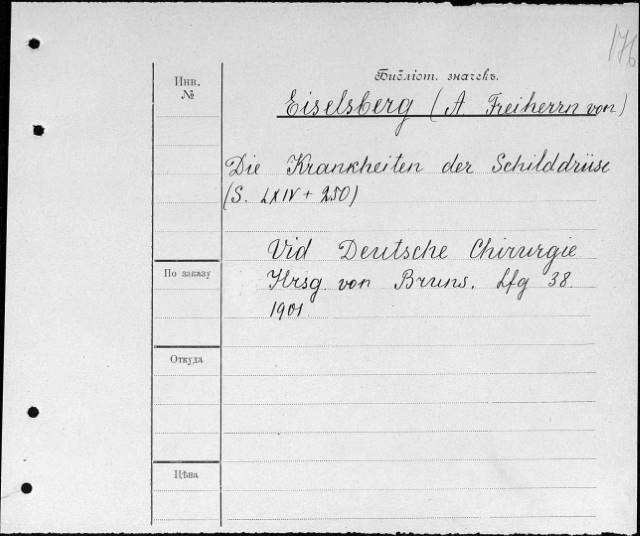 176
Инв.
№
Библіот. значекъ.
Eiselsberg (A. Freiherrn von)
Die Krankheiten der Schilddrüse
(S. LXIV + 250)
Vid Deutsche Chirurgie
По заказу
Hrsg. von Bruns. Lfg 38.
1901
Откуда
Цѣна